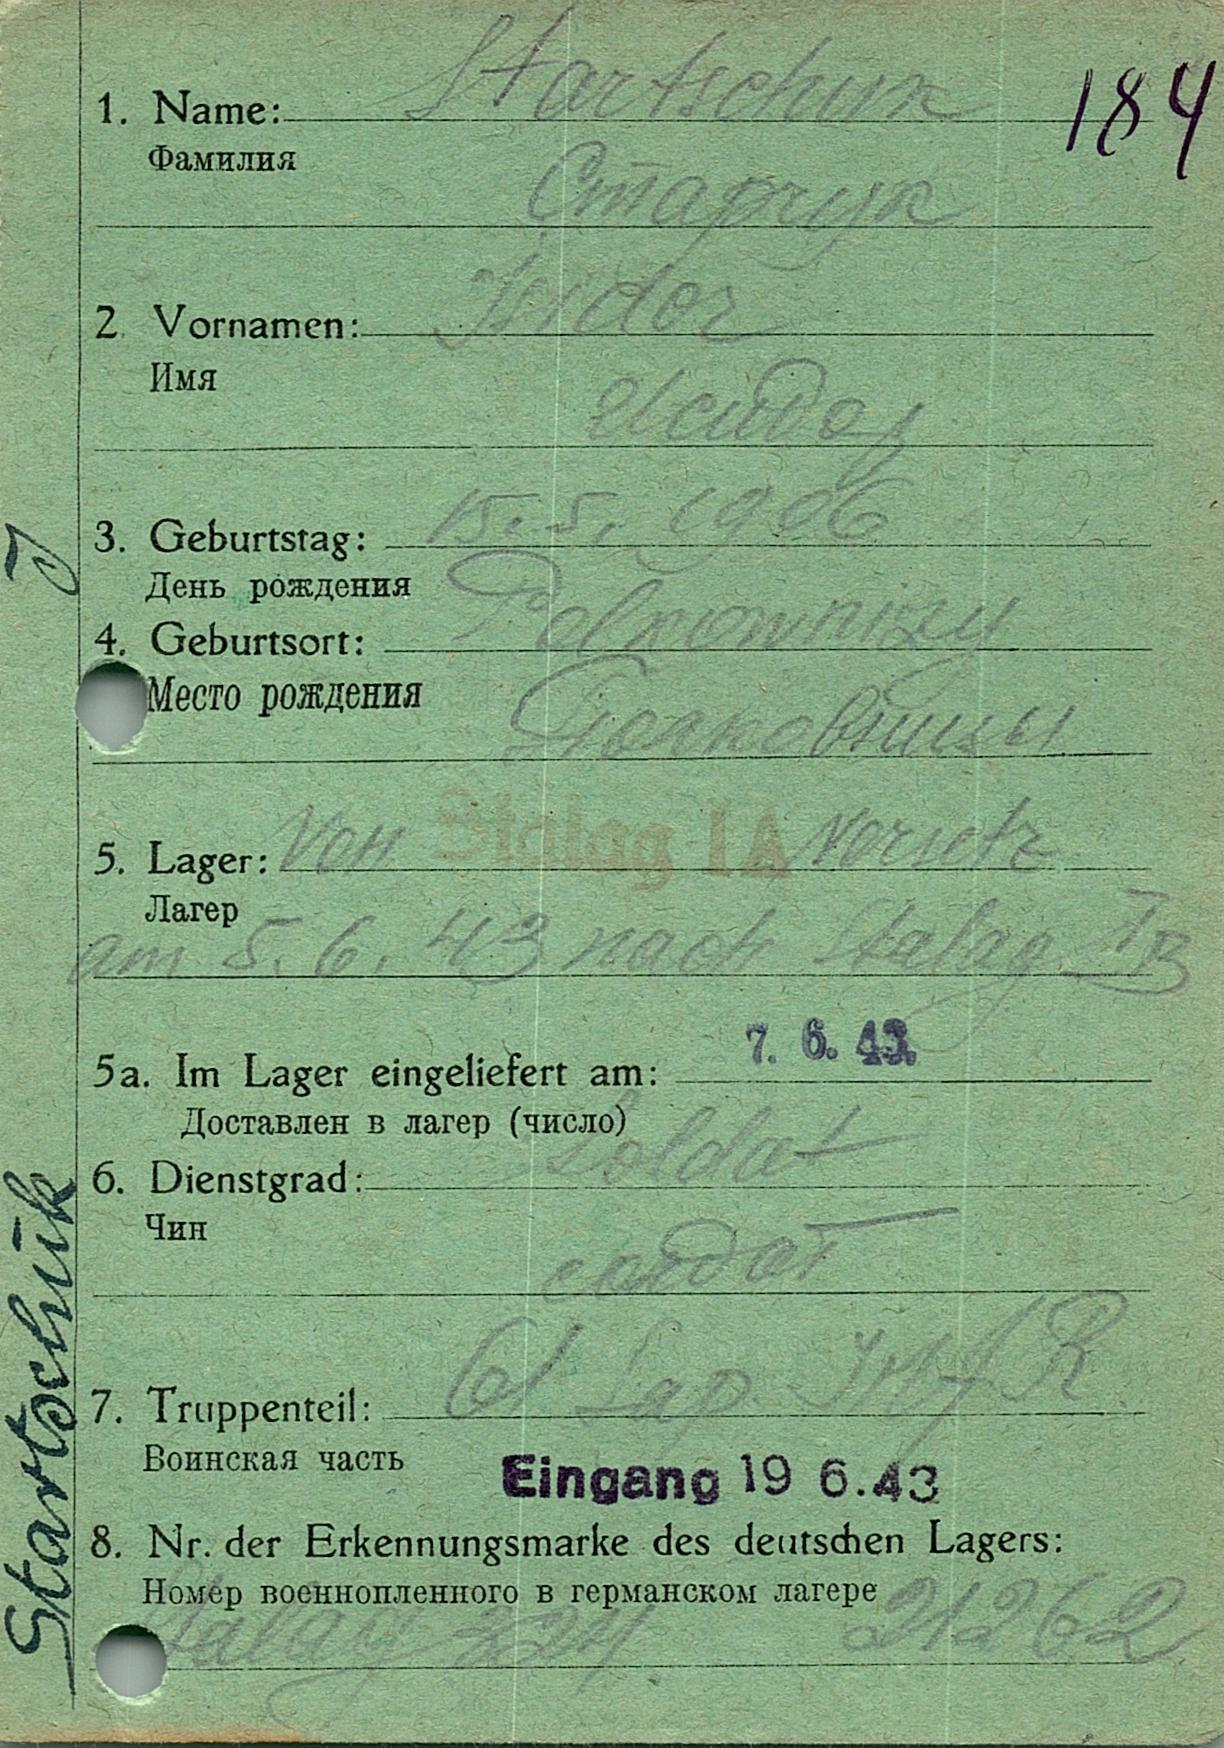 184
1. Name: Startschuk
Фамилия
Старчук
2. Vornamen: Isidor
Имя
Исидор
3. Geburtstag: 15.5.1906
День рождения
4. Geburtsort: Polkownizy
Место рождения
Полковницы
5. Lager: Von Stalag IA versetz
Лагер
am 5.6.43 nach Stalag IB
7. 6. 43.
5a. Im Lager eingeliefert am:
Доставлен в лагер (число)
6. Dienstgrad: Soldat
Чин
солдат
7. Truppenteil: 61 Sap Inf R
Воинская часть
Eingang 19 6.43
8. Nr. der Erkennungsmarke des deutschen Lagers:
Номер военнопленного в германском лагере
Stalag 324 21262
Startschuk J